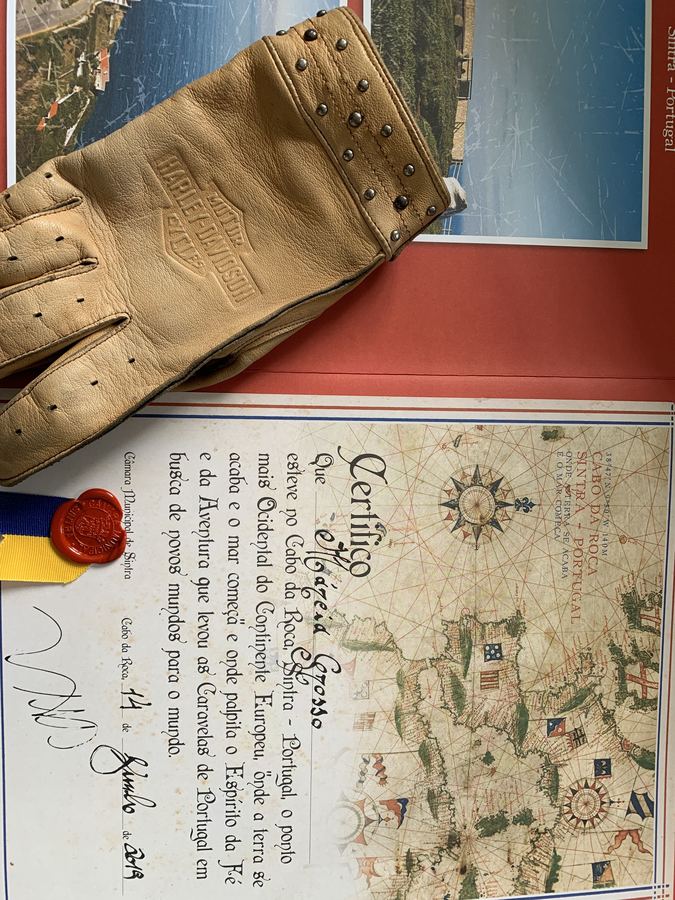 Sintra - Portugal
MOTOR
HARLEY-DAVIDSON
38°47' N, 9°30' W, 140M
CABO DA ROCA
SINTRA - PORTUGAL
ONDE A TERRA SE ACABA
E O MAR COMEÇA
Certifico
Que Márcia Grosso
esteve no Cabo da Roca, Sintra - Portugal, o ponto
mais Ocidental do Continente Europeu, "onde a terra se
acaba e o mar começa" e onde palpita o Espírito da Fé
e da Aventura que levou as Caravelas de Portugal em
busca de novos mundos para o mundo.
Câmara Municipal de Sintra
Cabo da Roca, 14 de Junho de 2019